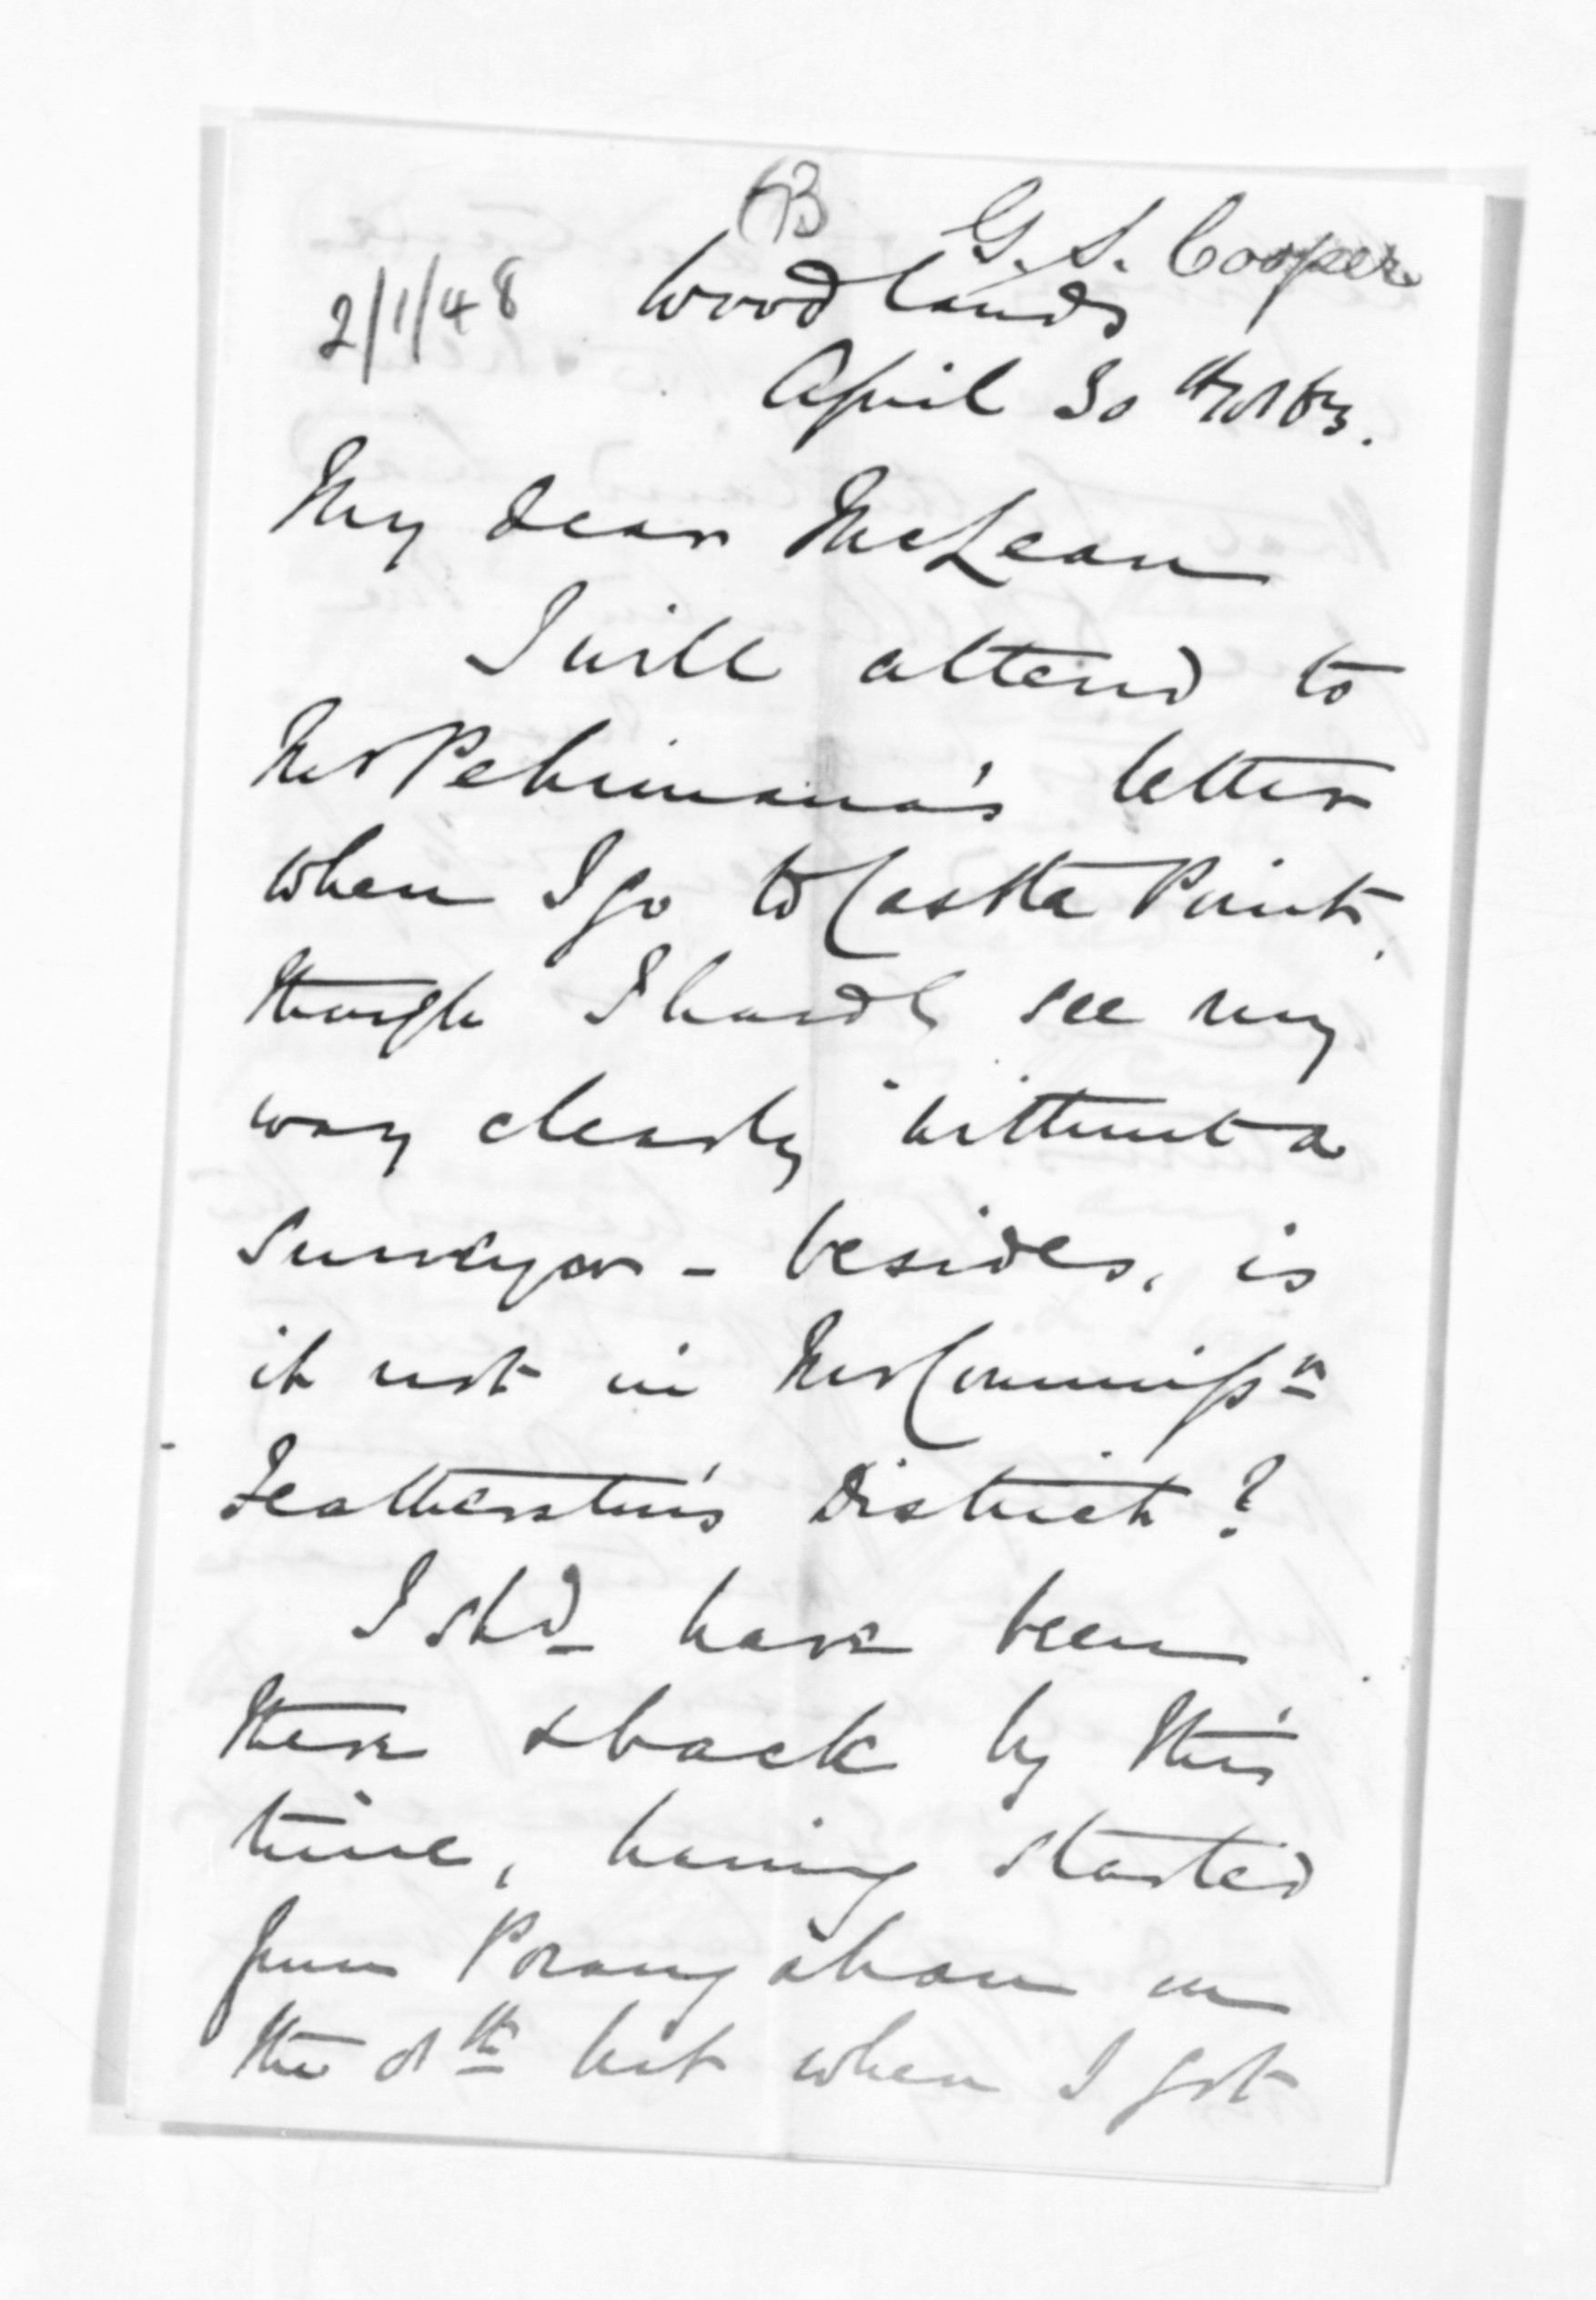 G. S. Cooper
2/1/48 Woodlands
April 30th 1863.
My dear McLean
I will attend to
Mr Pehimana's letter
when I go to Castle Point,
though I hardl see my
way clearly without a
surveyor - besides, is
it not in Mr Commissr
Featherston's District?
I shd have been
there & back by this
time, having started
from Porangahau on
the 8th but when I got